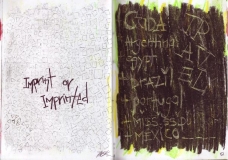 Imprint or
Imprinted
CUBA
Argentina
EGYPT
+ BRAZIL
+ PORTUGAL
+ MISSISSIPPI
+ MEXICO
TRAVEL